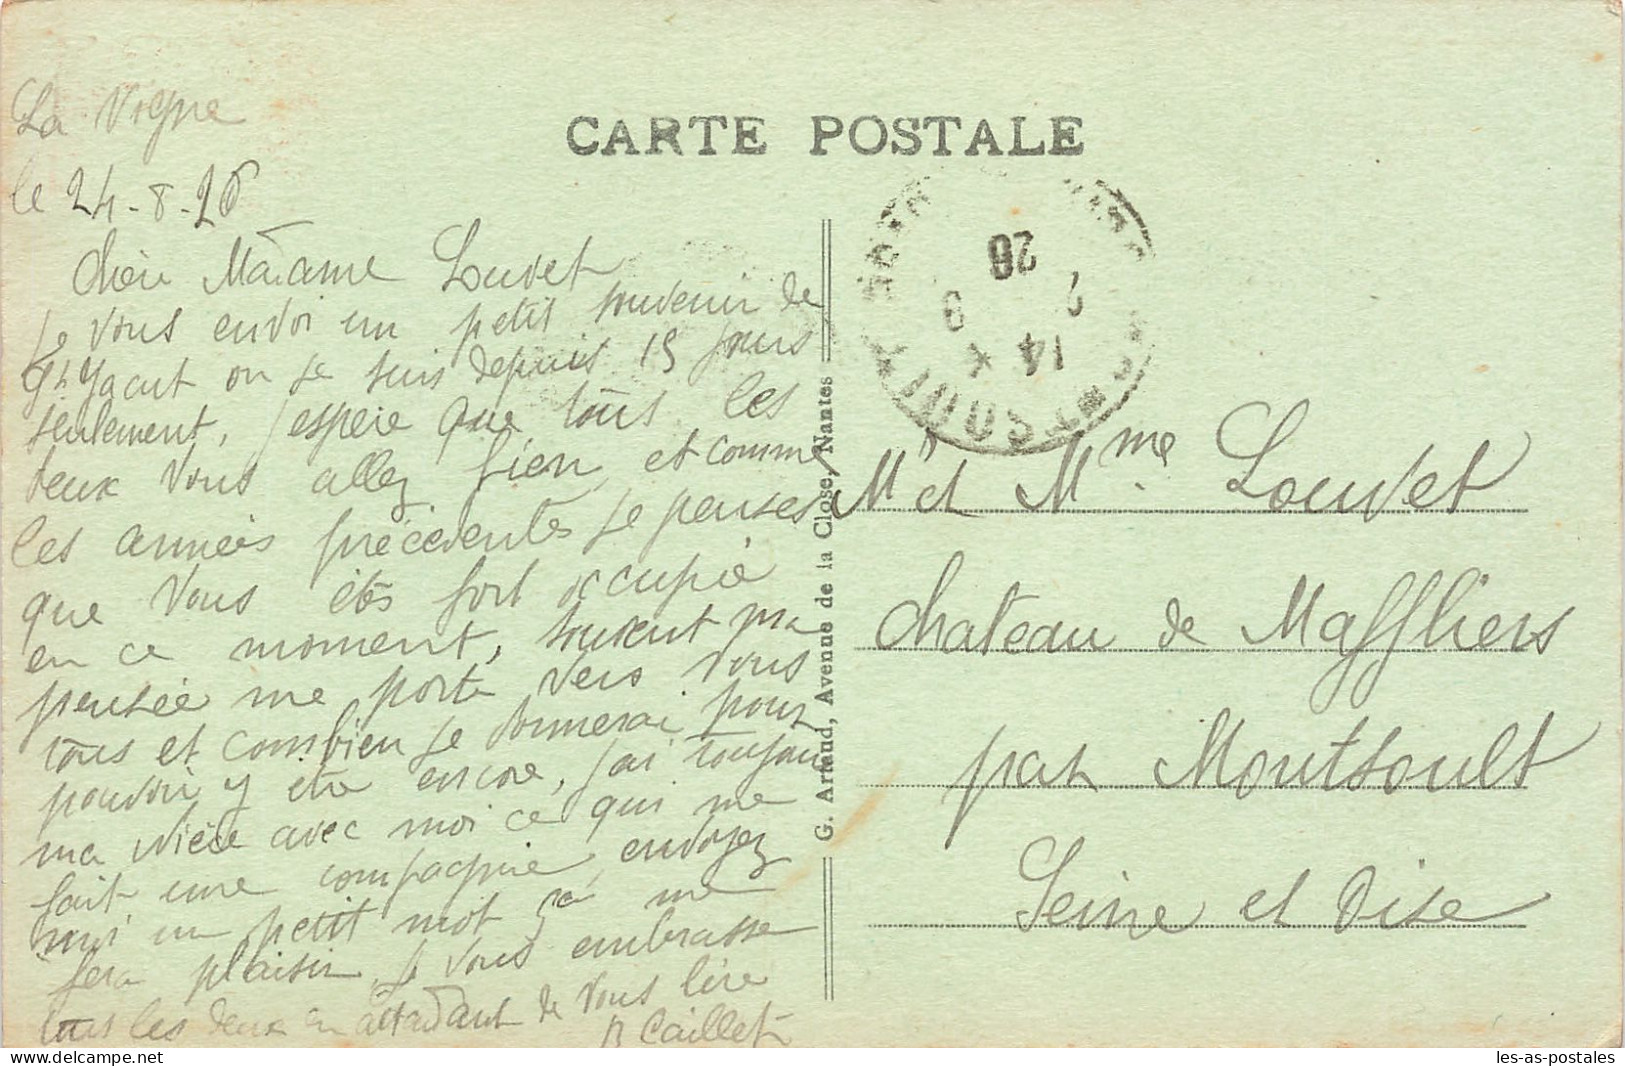 CARTE POSTALE
La Vigne
le 24-8-26
Chère Madame Louvet
Je vous envoi un petit souvenir de
St Yacut on je suis depuis 15 jours
seulement, j'espère que tous les
deux vous allez bien, et comme
les années précédentes je penses
que vous êtes fort occupié
en ce moment, souvent ma
pensée me porte vers vous
tous et combien je donnerai pour
pouvoir y être encore, j'ai toujours
ma nièce avec moi ce qui me
fait une compagnie, envoyez
moi un petit mot ça me
fera plaisir, je vous embrasse
tous les deux en attendant de vous lire
B Caillet
G. Artaud, Avenue de la Close, Nantes
14 * 2 9 26
Mr et Mme Louvet
Chateau de Maffliers
par Montsoult
Seine et Oise
les-as-postales